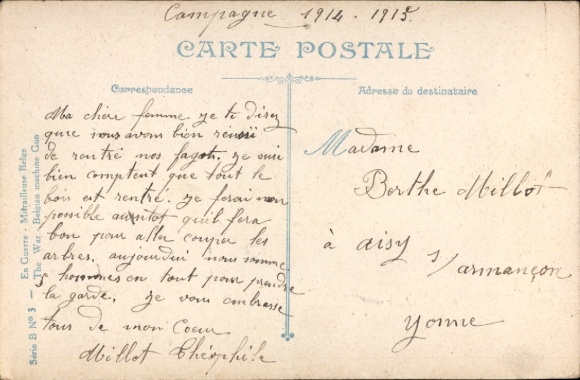 Campagne 1914. 1915.
CARTE POSTALE
Correspondance
Adresse du destinataire
Ma chère femme je te direz
que nous avons bien reussi
de rentré nos fagots. je suis
bien comptent que tout le
bois est rentré. je ferai mon
possible aussitot qu'il fera
bon pour aller couper les
arbres. aujourdui nous somme
5 hommes en tout pour prendre
la garde. je vous embrasse
tous de mon Coeur
Millot Théophile
Madame
Berthe Millot
à aisy s/armançon
Yonne
Série B No 3 — En Guerre - Mitrailleuse Belge
The War Belgian machine Gun